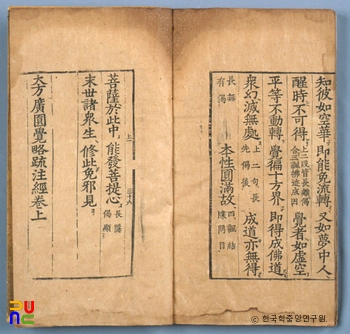 知彼如空華 即能免流轉 又如夢中人
醒時不可得 覺者如虛空
平等不動轉 覺徧十方界 即得成佛道
衆幻滅無處 上二句長 先偈後 成道亦無得
長無 有偈 本性圓滿故
上
菩薩於此中 能發菩提心 長無 偈頌
末世諸衆生 修此免邪見
大方廣圓覺略䟽注經卷上
ⓒ한국학중앙연구원